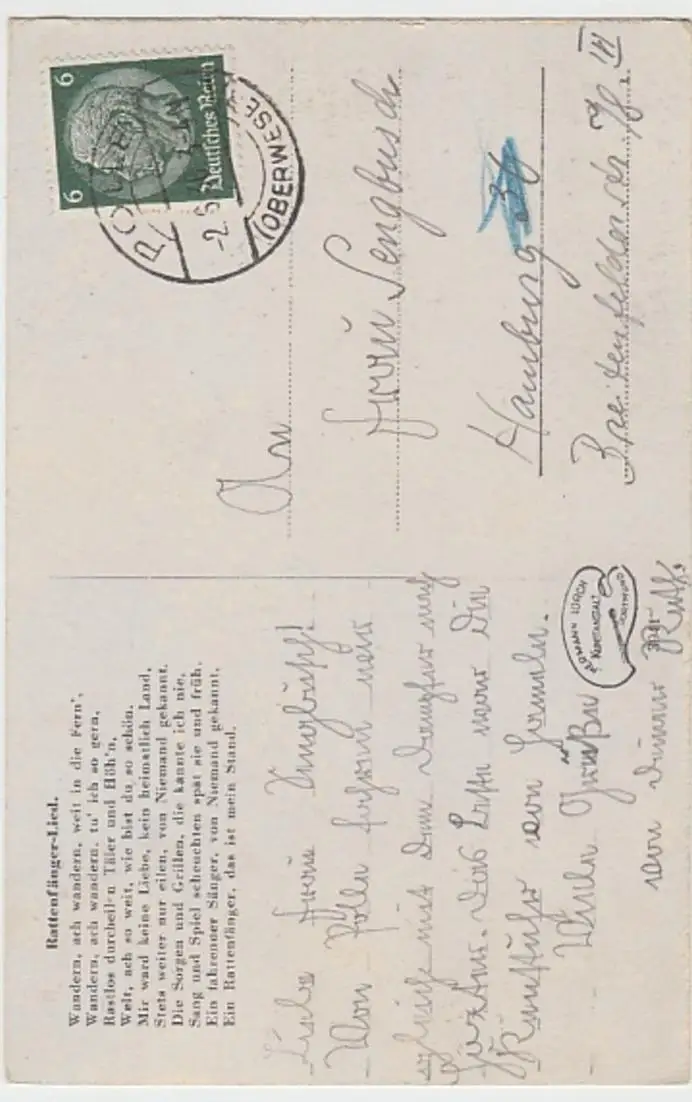 Rattenfänger-Lied.
Wandern, ach wandern, weit in die Fern',
Wandern, ach wandern, tu' ich so gern,
Rastlos durcheil'n Täler und Höh'n,
Welt, ach so weit, wie bist du so schön.
Mir ward keine Liebe, kein heimatlich Land,
Stets weiter nur eilen, von Niemand gekannt.
Die Sorgen und Grillen, die kannte ich nie,
Sang und Spiel scheuchten spät sie und früh.
Ein fahrender Sänger, von Niemand gekannt.
Ein Rattenfänger, das ist mein Stand.
Liebe Frau Sengbusch!
Von Polle fahren wir
gleich mit dem Dampfer nach
Höxter. Das Beste war die
Rundfahrt von Hameln.
Viele Grüße
von Deiner Ruth.
HERMANN LORCH
KUNSTANSTALT
DORTMUND
6 6
Deutsches Reich
POLLE
(OBERWESE
An
Frau Sengbusch
Hamburg
Breitenfelderstr. 78. III